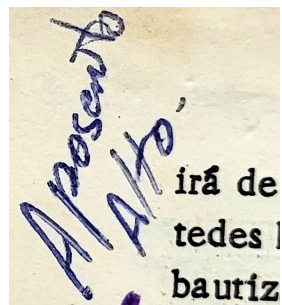 Aposento
Alto
irá de
tedes
bautiz